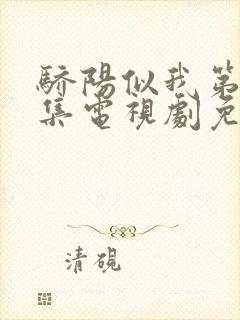 驕陽似我第
集電視劇免
清硯